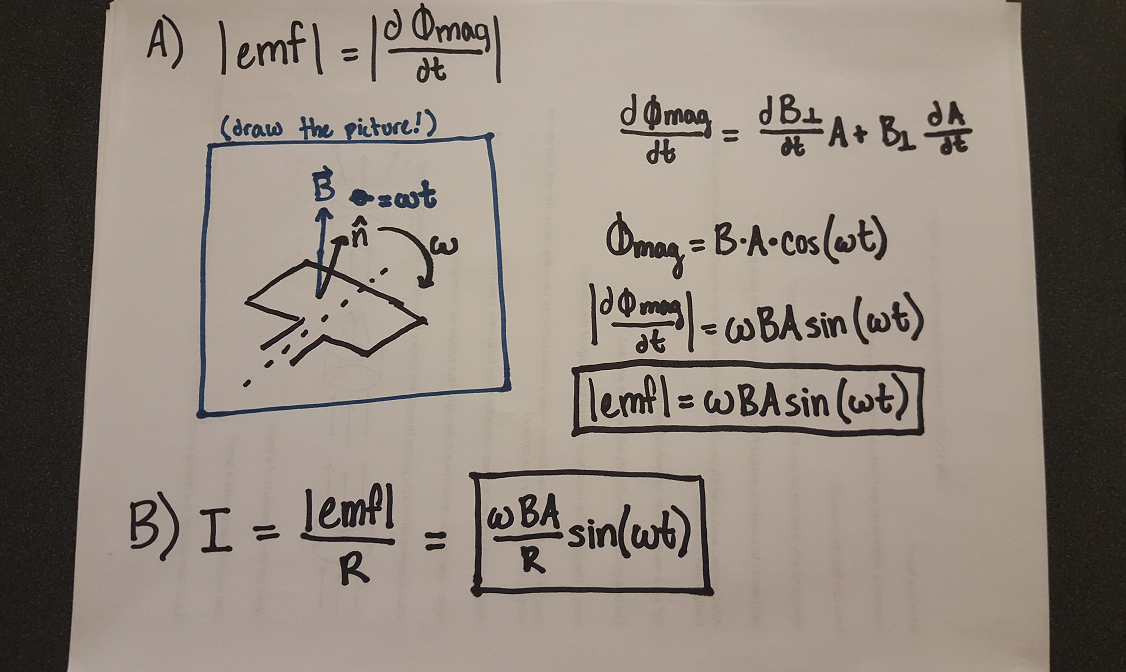 A) |emf| = |dΦmag/dt|
(draw the picture!)
B⃗ θ = ωt
n̂
ω
dΦmag/dt = dB⊥/dt A + B⊥ dA/dt
Φmag = B·A·cos(ωt)
|dΦmag/dt| = ωBA sin(ωt)
|emf| = ωBA sin(ωt)
B) I = |emf|/R = ωBA/R sin(ωt)